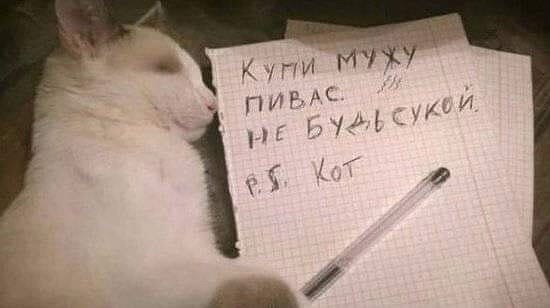 Купи мужу
пивас.
не будь сукой.
P.S. Кот